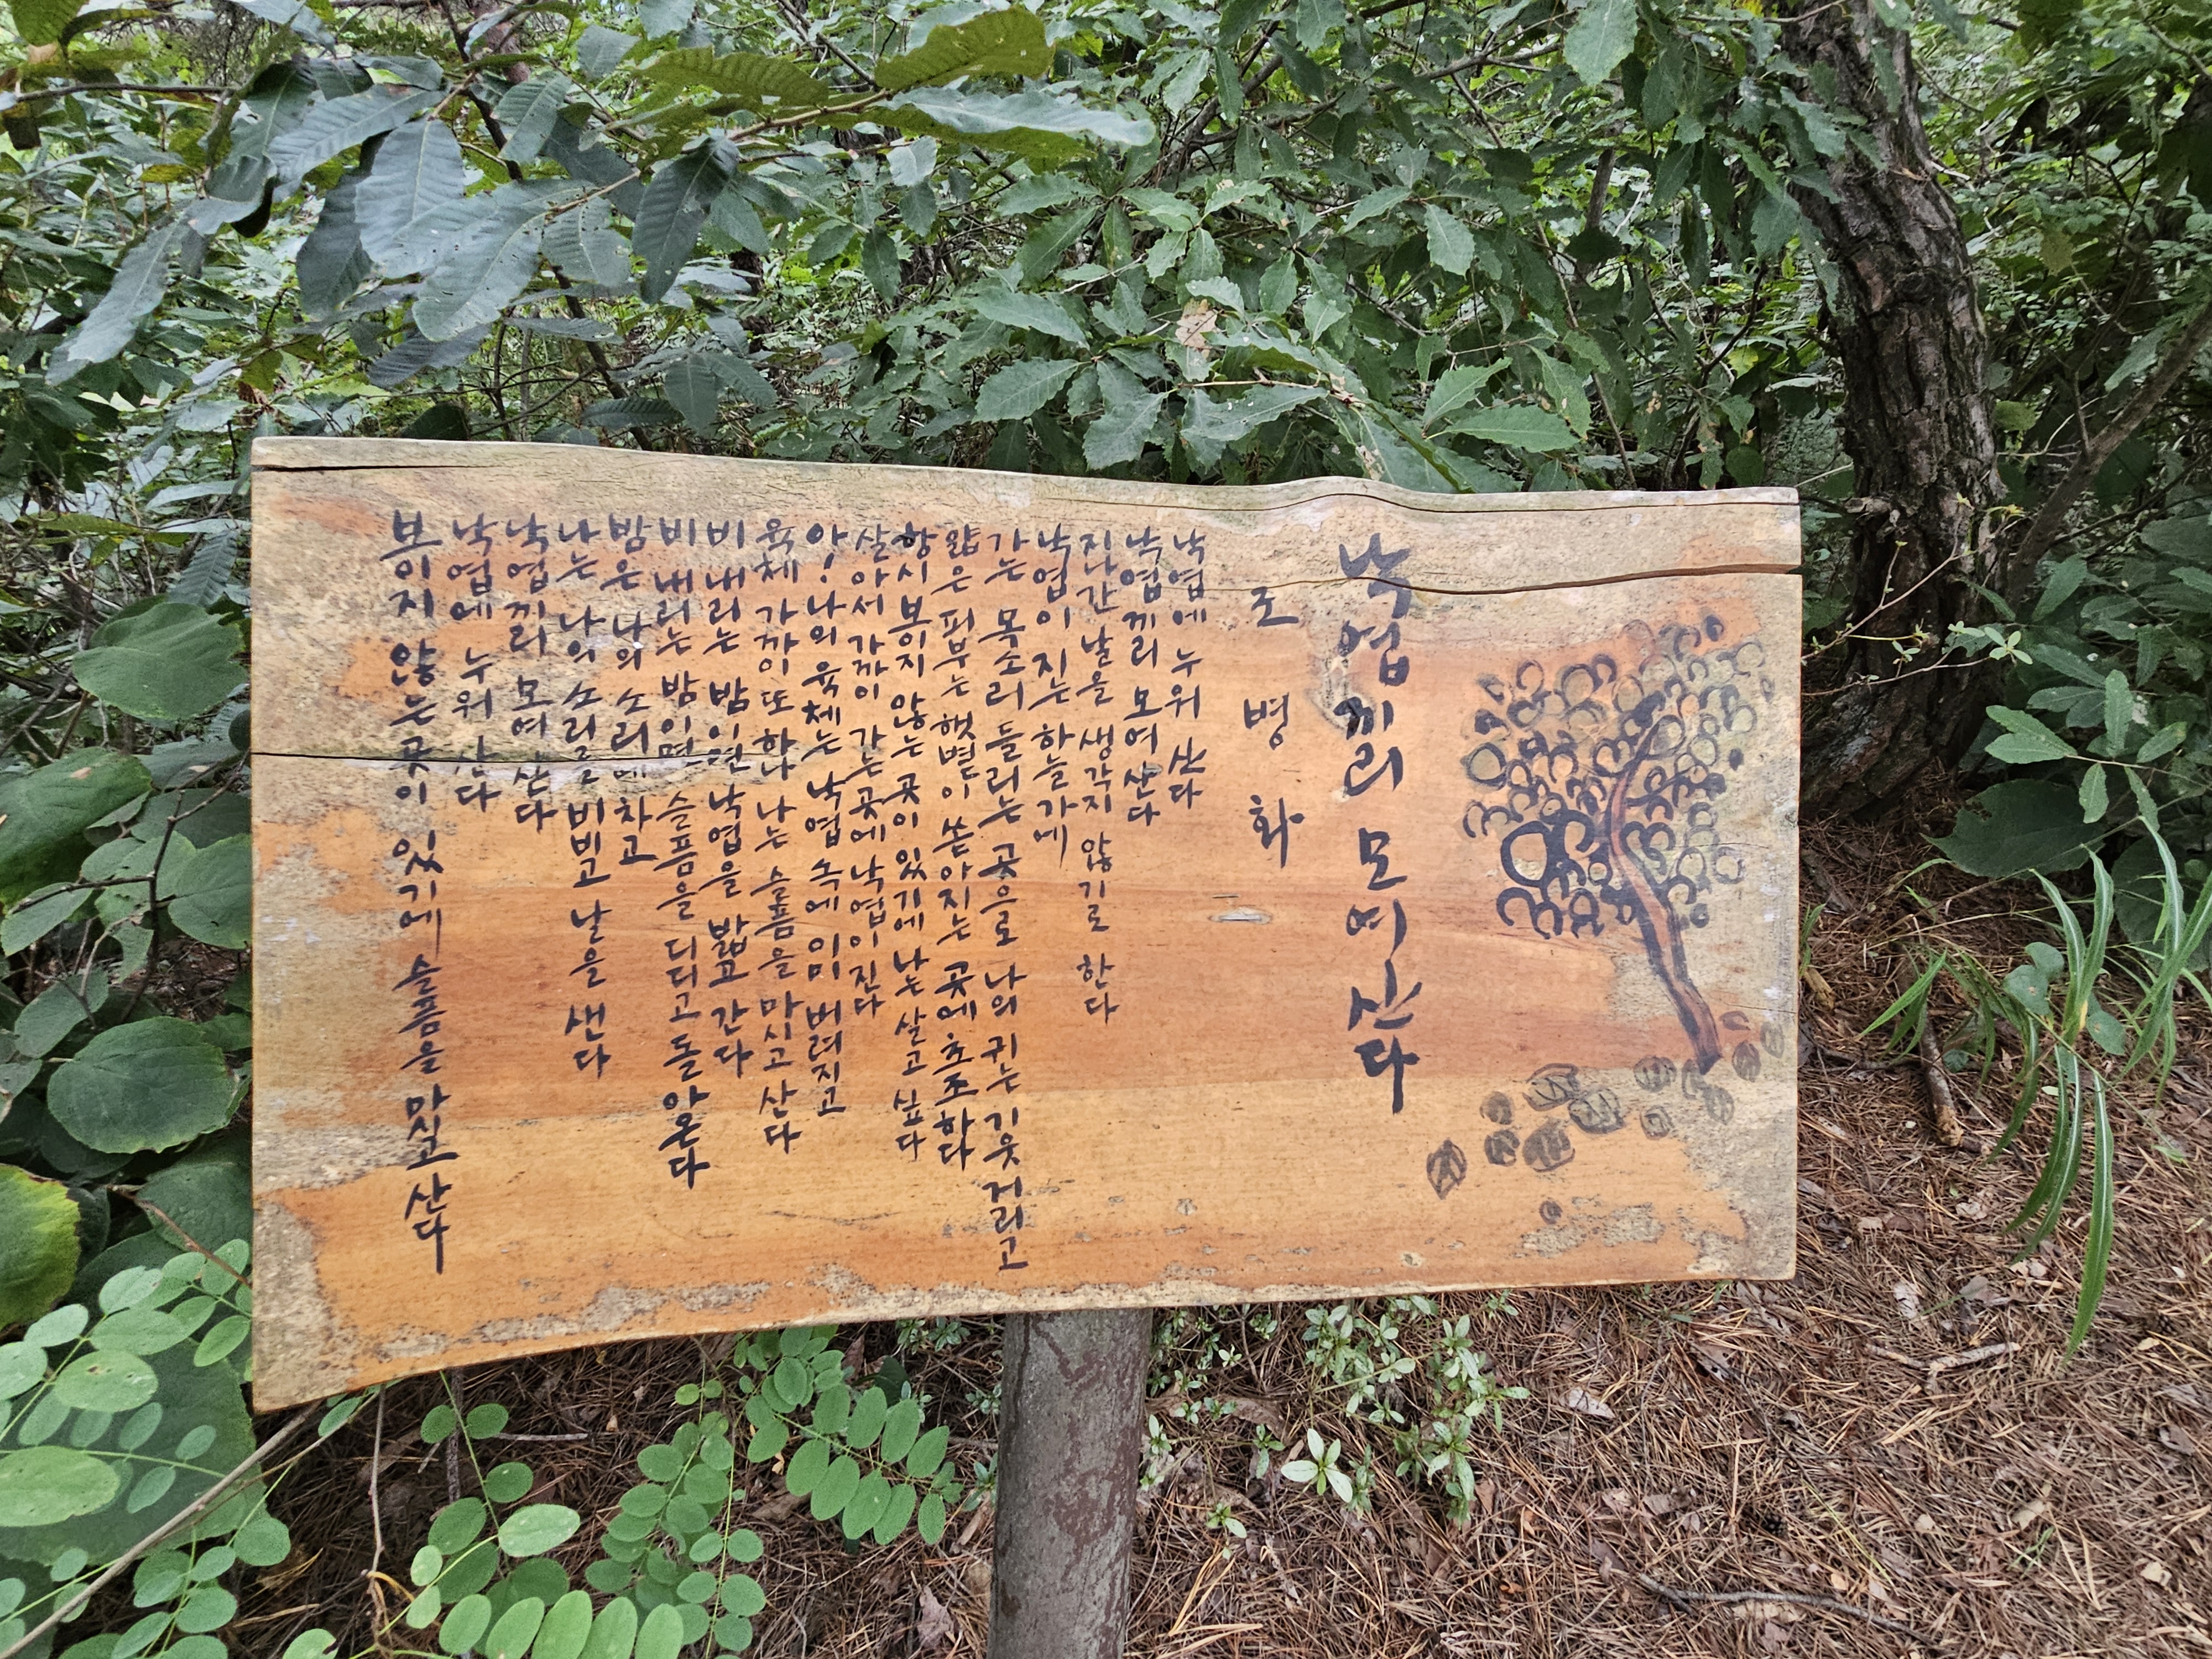 낙엽끼리 모여 산다
조병화
낙엽에 누워 산다
낙엽끼리 모여 산다
지나간 날을 생각지 않기로 한다
낙엽이 지는 하늘가에
가는 목소리 들리는 곳으로 나의 귀는 기웃거리고
얇은 피부는 햇볕이 쏟아지는 곳에 초조하다
항시 보이지 않는 곳이 있기에 나는 살고 싶다
살아서 가까이 가는 곳에 낙엽이 진다
아! 나의 육체는 낙엽 속에 이미 버려지고
육체 가까이 또 하나 나는 슬픔을 마시고 산다
비 내리는 밤이면 낙엽을 밟고 간다
비 내리는 밤이면 슬픔을 디디고 돌아온다
밤은 나의 소리에 차고
나는 나의 소리를 비비고 날을 샌다
낙엽끼리 모여 산다
낙엽에 누워 산다
보이지 않는 곳이 있기에 슬픔을 마시고 산다